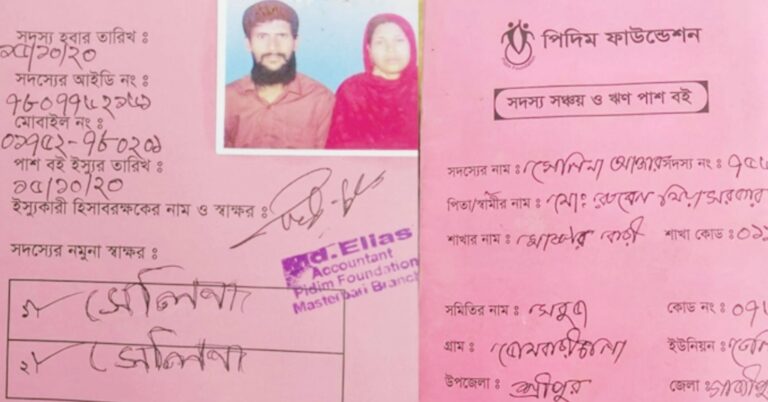 সদস্য হবার তারিখ :
১৫/১০/২০
সদস্যের আইডি নং :
মোবাইল নং :
পাশ বই ইস্যুর তারিখ :
১৫/১০/২০
ইস্যুকারী হিসাবরক্ষকের নাম ও স্বাক্ষর :
Md. Elias
Accountant
Pidim Foundation
Masterbari Branch
সদস্যের নমুনা স্বাক্ষর :
১। সেলিনা
২। সেলিনা
পিদিম ফাউন্ডেশন
সদস্য সঞ্চয় ও ঋণ পাশ বই
সদস্যের নাম : সেলিনা আক্তার সদস্য নং :
পিতা/স্বামীর নাম : মো: রুবেল মিয়া সরকার
শাখার নাম : মাষ্টার বাড়ী শাখা কোড :
সমিতির নাম : সবুজ কোড নং :
গ্রাম : ইউনিয়ন :
উপজেলা : শ্রীপুর জেলা : গাজীপু